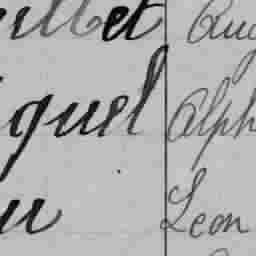 illet Aug
iquel Alph
u Leon